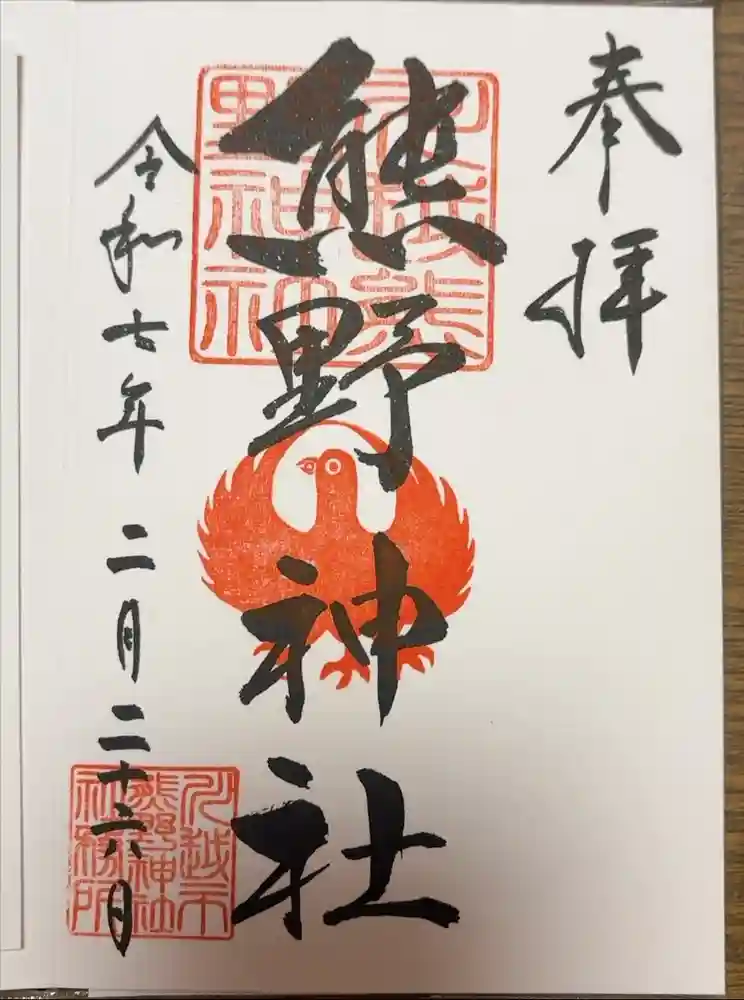 奉拝
熊野神社
令和七年 二月二十六日
川越市
熊野神社
社務所